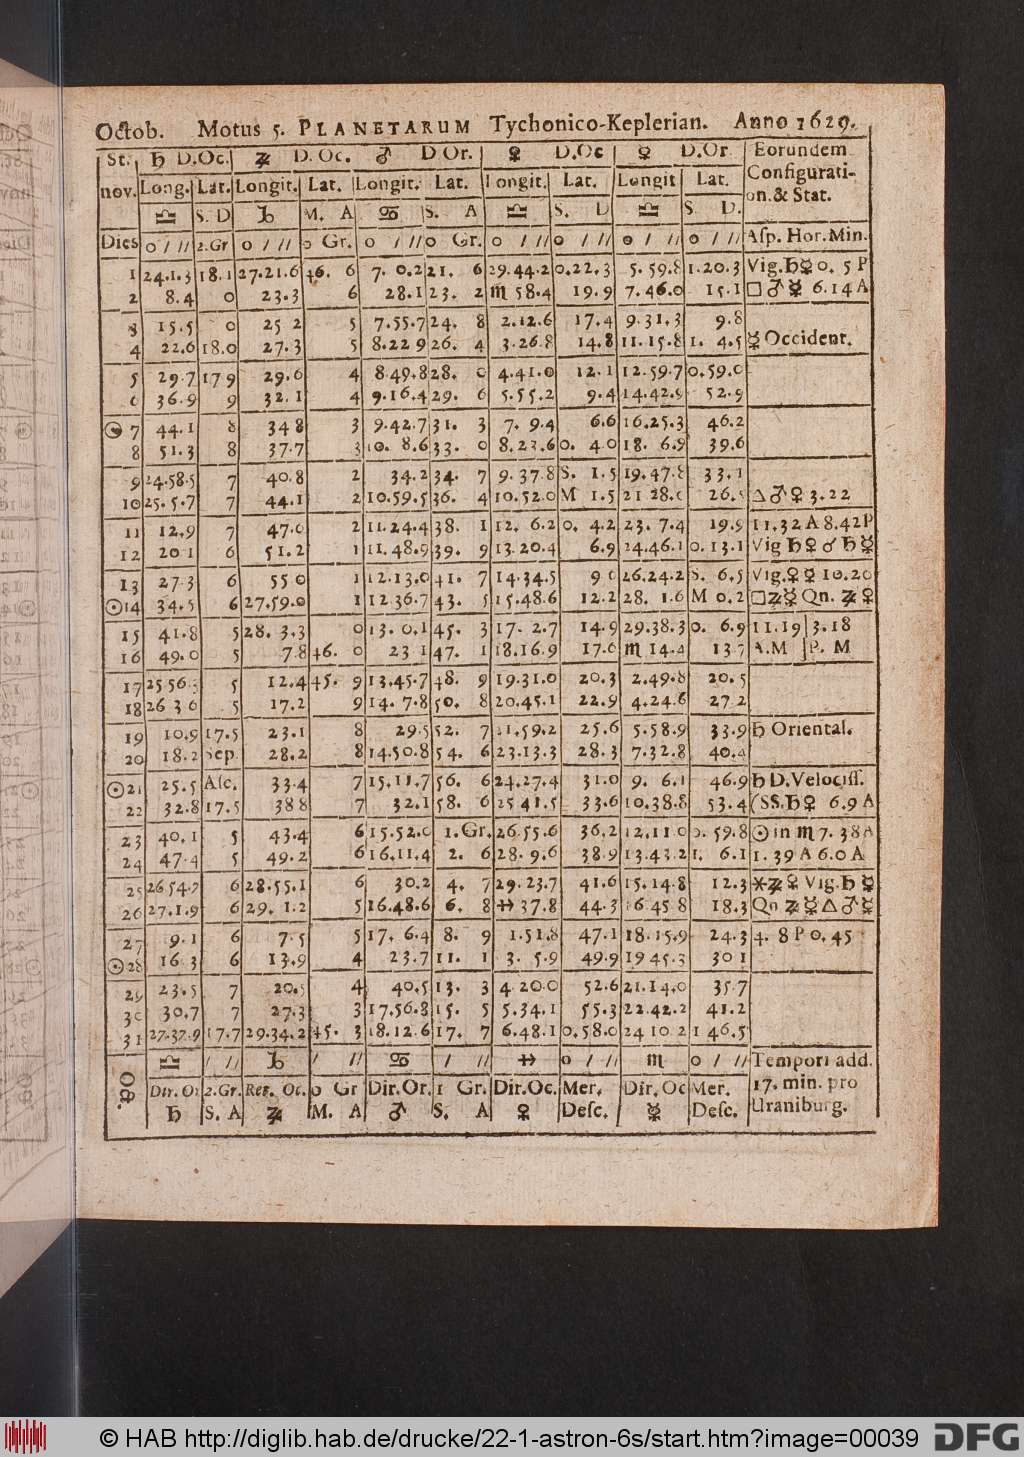 Octob. Motus 5. PLANETARUM Tychonico-Keplerian. Anno 1629.
St. ♄ D.Oc. ♃ D. Oc. ♂ D Or. ♀ D.Oc ☿ D.Or. Eorundem
nov. Long. Lat. Longit. Lat. Longit. Lat. Longit. Lat. Longit Lat. Configurati-
♎ S. D ♑ M. A ♋ S. A ♎ S. D ♎ S. D. on.& Stat.
Dies 0 / // 2.Gr 0 / // 0 Gr. 0 / // 0 Gr. 0 / // 0 / // 0 / // 0 / // Aſp. Hor.Min.
1 24.1.3 18.1 27.21.6 46. 6 7. 0.2 21. 6 29.44.2 0.22.3 5. 59.8 1.20.3 Vig.♄☿ 0. 5 P
2 8.4 0 23.3 6 28.1 23. 2 ♏ 58.4 19.9 7.46.0 15.1 □♂☿ 6.14 A
3 15.5 0 25 2 5 7.55.7 24. 8 2.12.6 17.4 9.31.3 9.8
4 22.6 18.0 27.3 5 8.22 9 26. 4 3.26.8 14.8 11.15.8 1. 4.5 ☿ Occident.
5 29.7 17 9 29.6 4 8 49.8 28. 0 4.41.0 12.1 12.59.7 0.59.0
6 36.9 9 32.1 4 9.16.4 29. 6 5.55.2 9.4 14.42.9 52.9
7 44.1 8 34 8 3 9.42.7 31. 3 7. 9.4 6.6 16.25.3 46.2
8 51.3 8 37.7 3 10. 8.6 33. 0 8.23.6 0. 4.0 18. 6.9 39.6
9 24.58.5 7 40.8 2 34.2 34. 7 9.37.8 S. 1.5 19.47.8 33.1
10 25.5.7 7 44.1 2 10.59.5 36. 4 10.52.0 M 1.5 21 28.0 26. △♂♀ 3.22
11 12.9 7 47.6 2 11.24.4 38. 1 12. 6.2 0. 4.2 23. 7.4 19.9 11.32 A 8.42 P
12 20 1 6 51.2 1 11.48.9 39. 9 13.20.4 6.9 24.46.1 0.13.1 Vig ♄♀ ☌ ♄☿
13 27.3 6 55 0 1 12.13.0 41. 7 14.34.5 9 26.24.2 S. 6.5 Vig.♀☿ 10.20
☉14 34.5 6 27.59.0 1 12 36.7 43. 5 15.48.6 12.2 28. 1.6 M 0.2 □♃☿ Qn. ♃♀
15 41.8 5 28. 3.3 0 13. 0.1 45. 3 17. 2.7 14.9 29.38.3 0. 6.9 11.19 3.18
16 49.0 5 7.8 46. 0 23 1 47. 1 18.16.9 17.6 ♏ 14.4 13.7 A.M P. M
17 25 56.3 5 12.4 45. 9 13.45.7 48. 9 19.31.0 20.3 2.49.8 20.5
18 26 3 6 5 17.2 9 14. 7.8 50. 8 20.45.1 22.9 4.24.6 27 2
19 10.9 17.5 23.1 8 29.5 52. 7 21.59.2 25.6 5.58.9 33.9 ♄ Oriental.
20 18.2 Sep. 28.2 8 14.50.8 54. 6 23.13.3 28.3 7.32.8 40.4
☉21 25.5 Aſc. 33.4 7 15.11.7 56. 6 24.27.4 31.0 9. 6.1 46.9 ♄ D.Velociſſ.
22 32.8 17.5 38 8 7 32.1 58. 6 25 41.5 33.6 10.38.8 53.4 (SS.♄♀ 6.9 A
23 40.1 5 43.4 6 15.52.0 1.Gr. 26.55.6 36.2 12.11 0 0. 59.8 ☉ in ♏ 7. 38 A
24 47.4 5 49.2 6 16.11.4 2. 6 28. 9.6 38.9 13.43.2 1. 6.1 1. 39 A 6.0 A
25 26 54.7 6 28.55.1 6 30.2 4. 7 29. 23.7 41.6 15.14.8 12.3 ⚹♃♀ Vig.♄☿
26 27.1.9 6 29. 1.2 5 16.48.6 6. 8 ♐ 37.8 44.3 16 45 8 18.3 Qn ♃☿△♂☿
27 9.1 6 7.5 5 17. 6.4 8. 9 1.51.8 47.1 18.15.9 24.3 4. 8 P 0. 45
☉28 16 3 6 13.9 4 23.7 11. 1 3. 5.9 49.9 19 45.3 30 1
29 23.5 7 20.5 4 40.5 13. 3 4 20 0 52.6 21.14.0 35.7
30 30.7 7 27.3 3 17.56.8 15. 5 5.34.1 55.3 22.42.2 41.2
31 27.37.9 17.7 29.34.2 45. 3 18.12.6 17. 7 6.48.1 0.58.0 24 10 2 1 46.5
♎ / // ♑ / // ♋ / // ♐ 0 / // ♏ 0 / // Tempori add.
Oct. Dir. Or 2.Gr. Ret. Oc. 0 Gr Dir.Or. 1 Gr. Dir.Oc. Mer. Dir. Oc Mer. 17. min. pro
♄ S. A ♃ M. A ♂ S. A ♀ Deſc. ☿ Deſc. Uraniburg.
© HAB http://diglib.hab.de/drucke/22-1-astron-6s/start.htm?image=00039 DFG